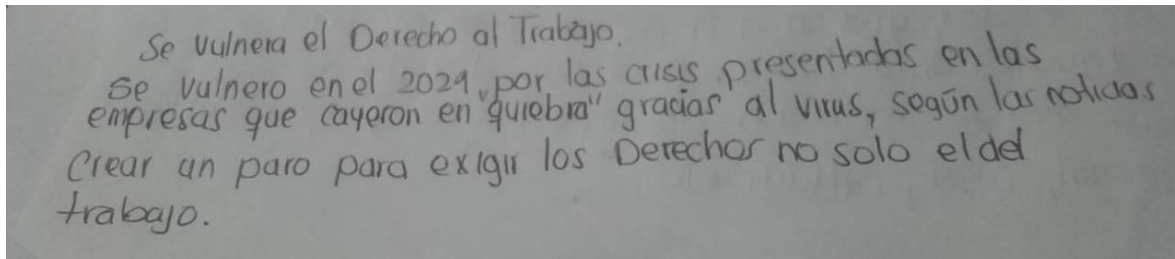 Se vulnera el Derecho al Trabajo.
Se vulnero en el 2029, por las crisis presentadas en las
empresas que cayeron en quiebra" gracias al virus, según las noticias
Crear un paro para exigir los Derechos no solo el del
trabajo.